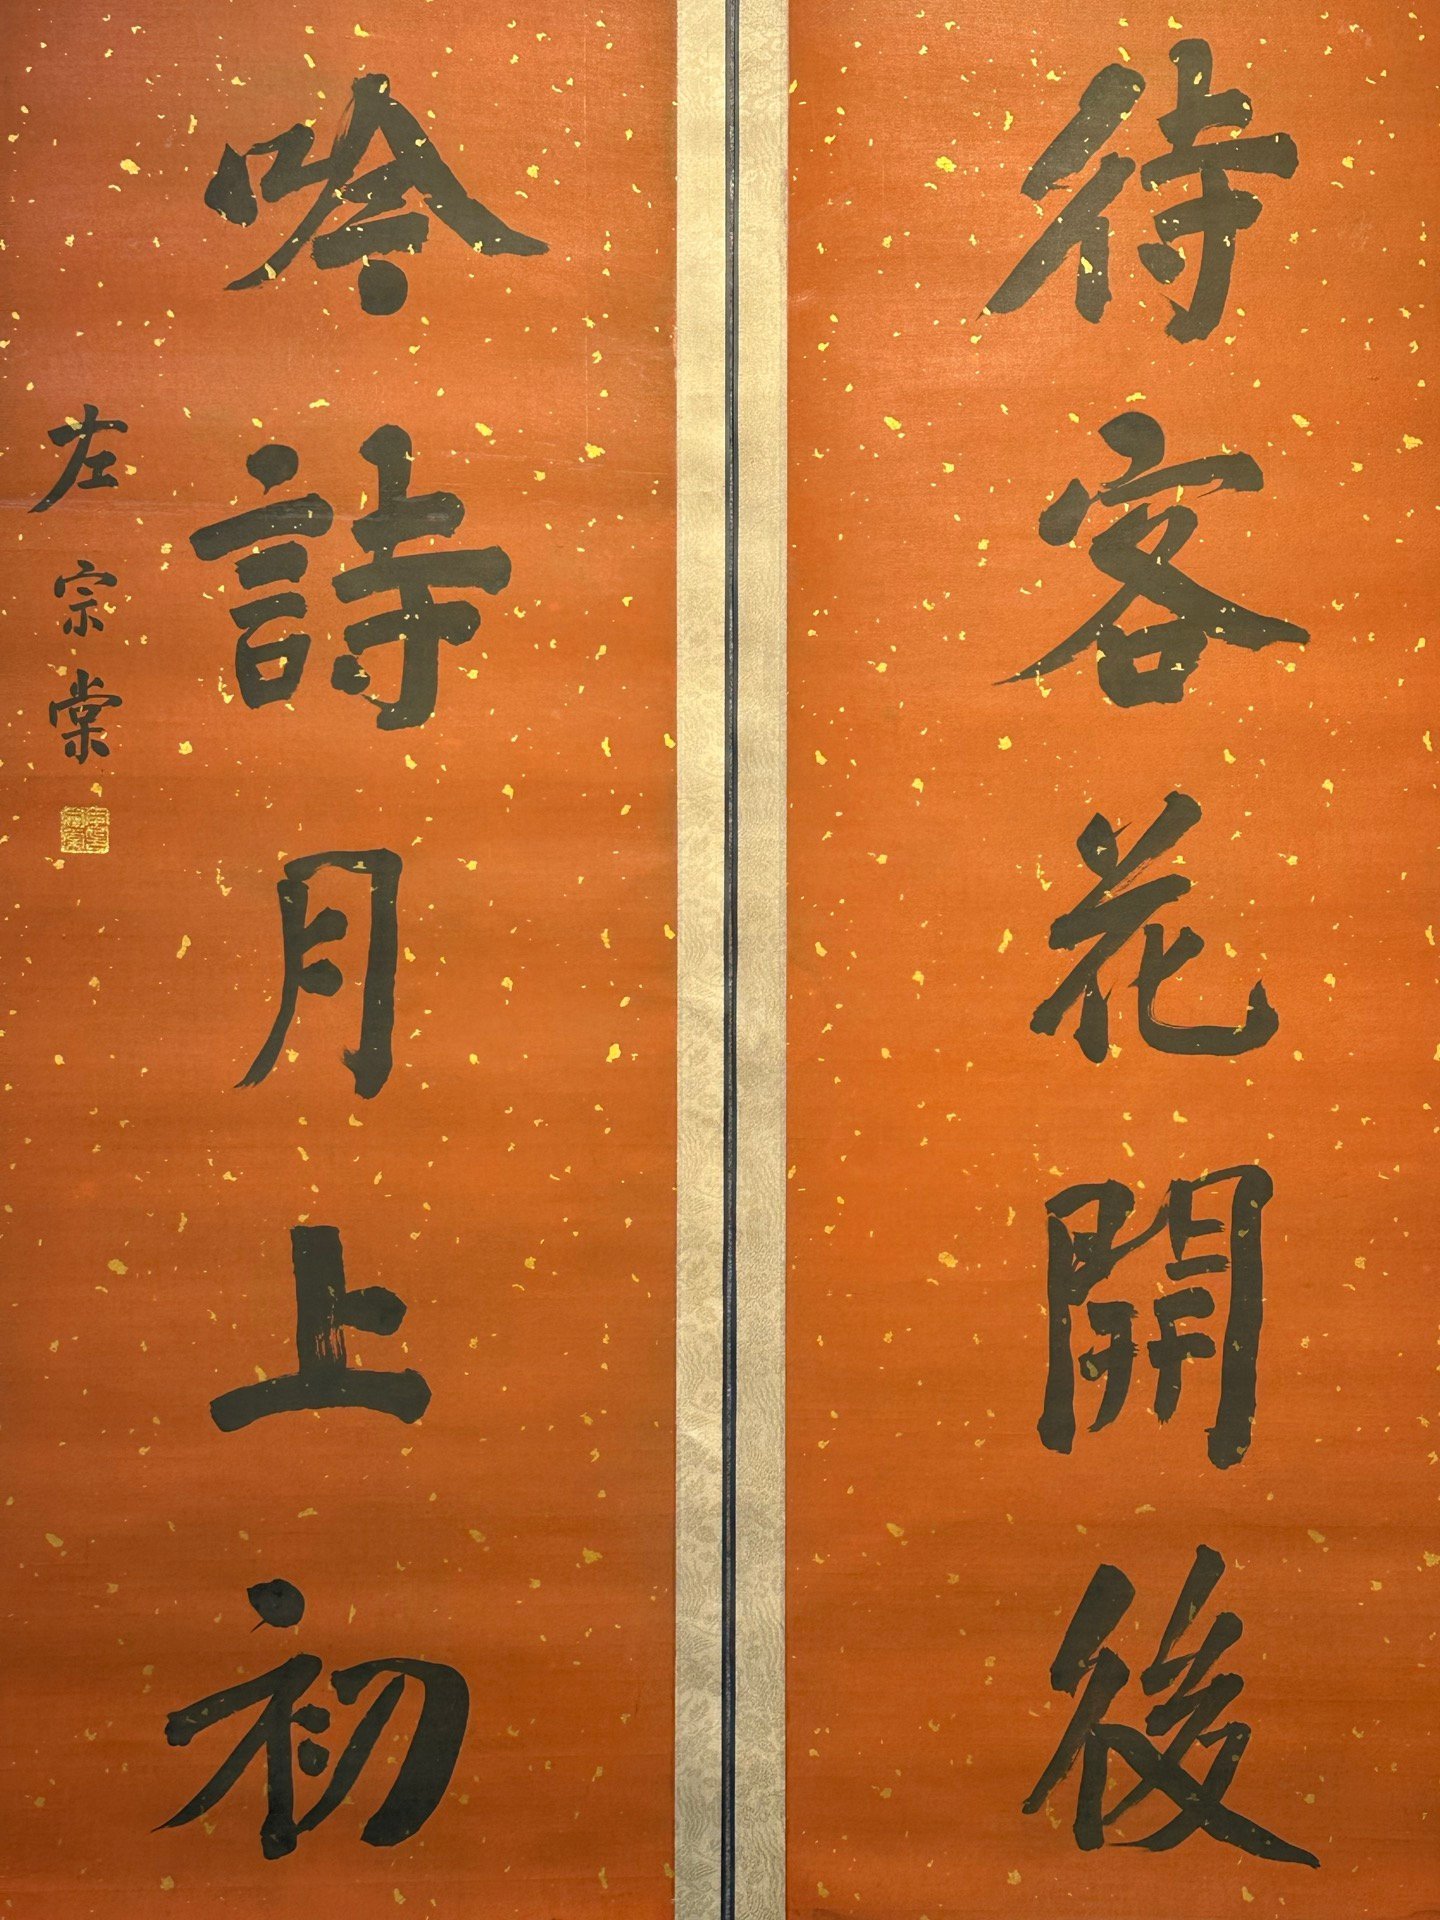 待客花開後
吟詩月上初
左宗棠